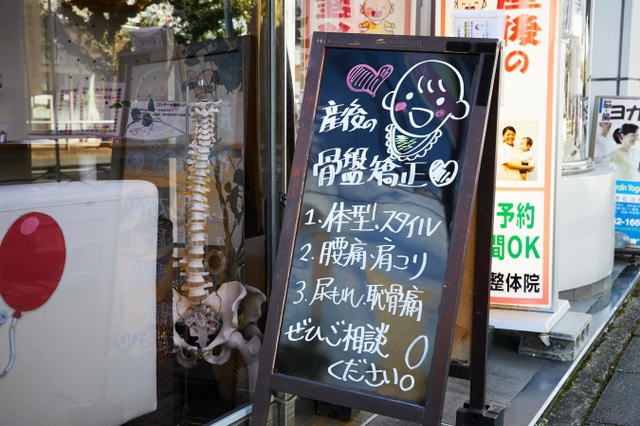 産後の
骨盤矯正
1.体型.スタイル
2.腰痛.肩コリ
3.尿もれ.恥骨痛
ぜひご相談
ください。
産後の
予約
間OK
整体院
ヨガ